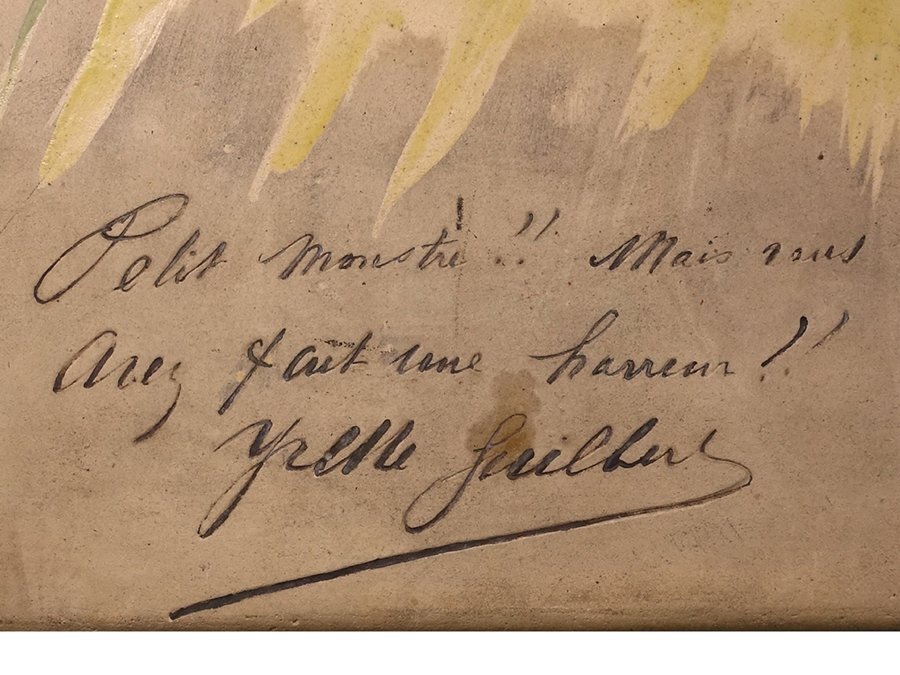 Petit monstre!! Mais vous
Avez fait une horreur!!
Yvette Guilbert